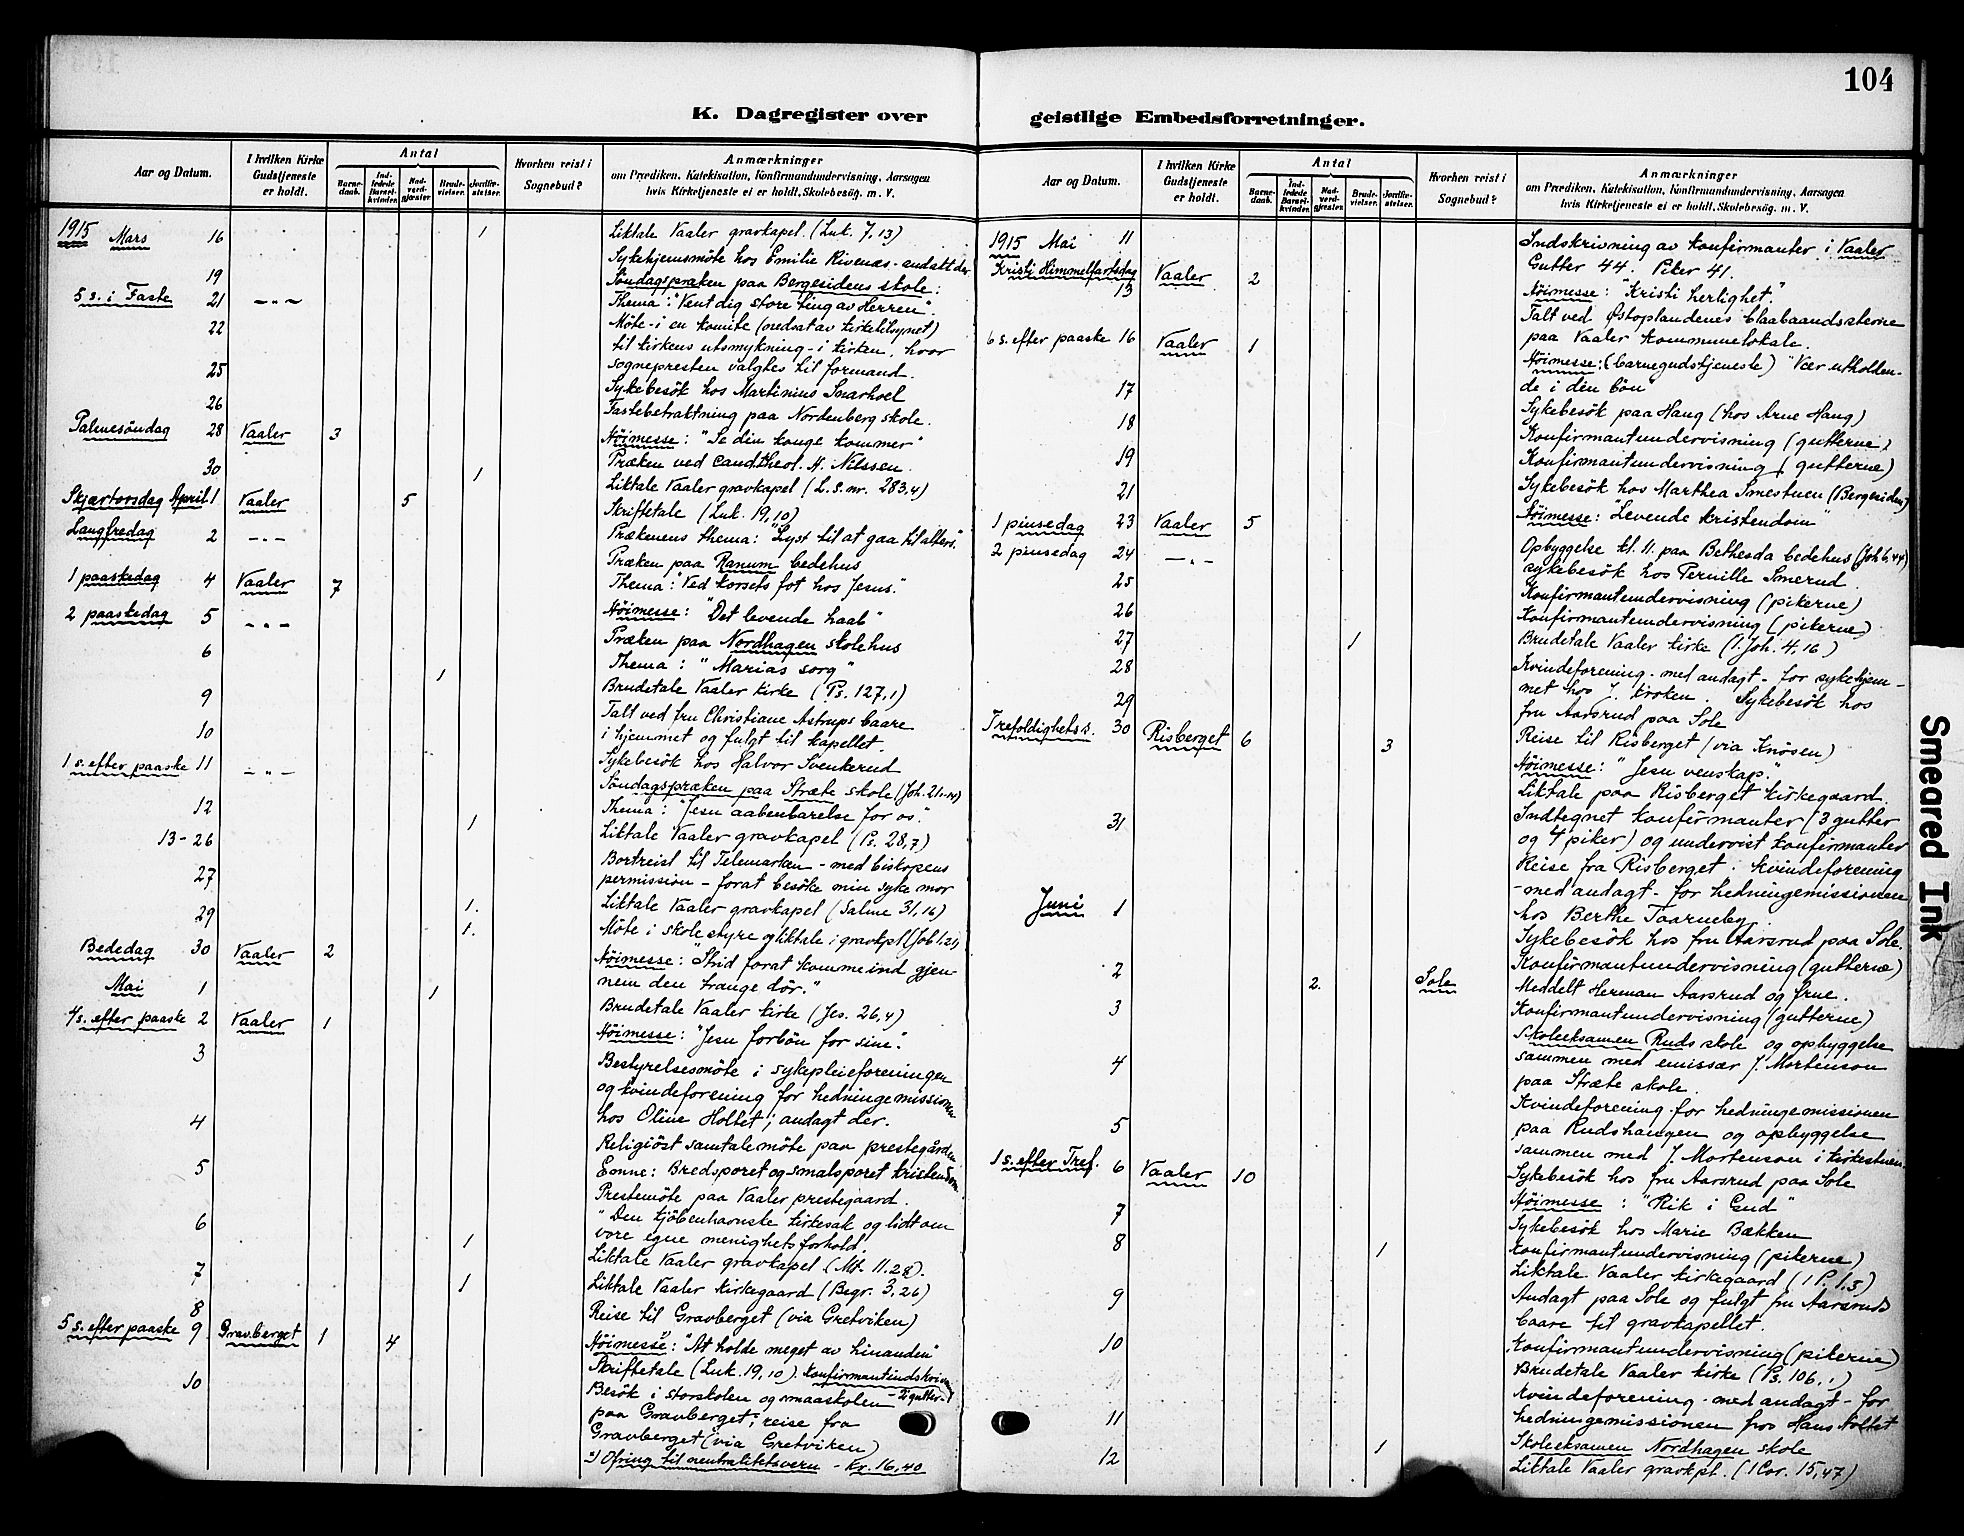 104
K. Dagregister over
geistlige Embedsforretninger.
Aar og Datum.
I hvilken Kirke Gudstjeneste er holdt.
Antal
Barnedaab.
Indledede Barselkvinder.
Nadverdgjæster.
Brudevielser.
Jordfæstelser.
Hvorhen reist i Sognebud?
Anmærkninger
om Prædiken, Katekisation, Konfirmandundervisning, Aarsagen
hvis Kirketjeneste ei er holdt, Skolebesøg. m. V.
1915 Mars 16 1 Liktale Vaaler gravkapel. (Luk. 7,13)
19 Sykehjemsmöte hos Emilie Rivenæs - andakt der
5 s. i Faste 21 -"- Söndagspræken paa Bergesidens skole:
Thema: "Vent dig store ting av Herren".
22 Möte - i en komite (nedsat av kirketilsynet)
til kirkens utsmykning - i kirken, hvor
sognepresten valgtes til formand.
25 Sykebesök hos Martinius Snarhoel
26 Fastebetraktning paa Nordenberg skole.
Palmesöndag 28 Vaaler 3 Höimesse: "Se din konge kommer"
Præken ved cand. theol. H. Nilssen.
30 1 Liktale Vaaler gravkapel (L.s. nr. 283.4)
Skjærtorsdag April 1 Vaaler 5 Skriftetale (Luk. 19,10)
Prækenens thema: "Lyst til at gaa til alters".
Langfredag 2 -"- Præken paa Ranum bedehus
Thema: "Ved korsets fot hos Jesus".
1 paaskedag 4 Vaaler 7 Höimesse: "Det levende haab"
2 paaskedag 5 -"- Præken paa Nordhagen skolehus
Thema: "Marias sorg"
6 1 Brudetale Vaaler kirke (Ps. 127,1)
9 Talt ved fru Christiane Astrups baare
i hjemmet og fulgt til kapellet.
10 Sykebesök hos Halvor Svenkerud
1 s. efter paaske 11 -"- Söndagspræken paa Stræte skole (Joh. 21,1-14)
Thema: "Jesu aabenbarelse for os".
12 1 Liktale Vaaler gravkapel (Ps. 28,7)
13-26 Bortreist til Telemarken - med biskopens
permission - forat besöke min syke mor
27 1. Liktale Vaaler gravkapel (Salme 31,16)
29 1. Möte i skolestyre og liktale i gravkpl (Job 1.21)
Bededag 30 Vaaler 2 Höimesse: "Strid forat komme ind gjen-
nem den trange dör."
Mai 1 1 Brudetale Vaaler kirke (Jes. 26,4)
4 s. efter paaske 2 Vaaler 1 Höimesse: "Jesu forbön for sine".
3 Bestyrelsesmöte i sykepleieforeningen
og kvindeforening for hedningemissionen
hos Oline Holtet; andagt der.
4 Religiöst samtalemöte paa prestegården
Emne: Bredsporet og smalsporet kristendom
5 Prestemöte paa Vaaler prestegaard.
"Den kjöbenhavnske kirkesak og lidt om
vore egne menighetsforhold.
6 1 Liktale Vaaler gravkapel (Mt. 11.28).
7 1 Liktale Vaaler kirkegaard (Begr. 3,26)
8 Reise til Gravberget (via Gretviken)
5 s. efter paaske 9 Gravberget 1 4 Höimesse: "At holde meget av hinanden"
Skriftetale (Luk. 19,10). Konfirmantindskrivn.
- 2 gutter.)
10 Besök i storskolen og smaaskolen
paa Gravberget; reise fra
Gravberget (via Gretviken)
Ofring til neutralitetsvern - Kr. 16,40
Aar og Datum.
I hvilken Kirke Gudstjeneste er holdt.
Antal
Barnedaab.
Indledede Barselkvinder.
Nadverdgjæster.
Brudevielser.
Jordfæstelser.
Hvorhen reist i Sognebud?
Anmærkninger
om Prædiken, Katekisation, Konfirmandundervisning, Aarsagen
hvis Kirketjeneste ei er holdt, Skolebesøg. m. V.
1915 Mai 11 Indskrivning av konfirmanter i Vaaler
Gutter 44. Piker 41.
Kristi Himmelfartsdag 13 Vaaler 2 Höimesse: "Kristi herlighet."
Talt ved Østoplandenes blaabaandsstevne
paa Vaaler kommunelokale.
6 s. efter paaske 16 Vaaler 1 Höimesse: (barnegudstjeneste) "Vær utholden-
de i den bön"
17 Sykebesök paa Haug (hos Arne Haug)
18 Konfirmantundervisning (gutterne)
19 Konfirmantundervisning (gutterne)
21 Sykebesök hos Marthea Smestuen (Bergesiden)
1 pinsedag 23 Vaaler 5 Höimesse: "Levende kristendom"
2 pinsedag 24 -"- Opbyggelse kl. 11. paa Bethesda bedehus (Joh 6,44)
25 sykebesök hos Pernille Smerud
Konfirmantundervisning (pikerne)
26 Konfirmantundervisning (pikerne)
27 1 Brudetale Vaaler kirke (1. Joh. 4,16)
28 Kvindeforening - med andagt - for sykehjem-
met hos J. Kroken. Sykebesök hos
fru Aarsrud paa Sole
29 Reise til Risberget (via Knösen)
Trefoldighetss. 30 Risberget 6 3 Höimesse: "Jesu venskap."
Liktale paa Risberget kirkegaard.
31 Indtegnet konfirmanter (3 gutter
og 4 piker) og undervist konfirmanter
Reise fra Risberget. Kvindeforening
- med andagt - for hedningemissionen
hos Berthe Taarneby.
Juni 1 Sykebesök hos fru Aarsrud paa Sole.
Konfirmantundervisning (gutterne)
2 2. Sole Meddelt Herman Aarsrud og frue.
3 Konfirmantundervisning (gutterne)
Skoleeksamen Ruds skole og opbyggelse
sammen med emissær J. Mortenson
paa Stræte skole.
4 Kvindeforening for hedningemissionen
paa Rudshaugen og opbyggelse
sammen med J. Mortenson i kirkestuen.
5 Sykebesök hos fru Aarsrud paa Sole
1 s. efter Tref. 6 Vaaler 10 Höimesse: "Rik i Gud"
7 Sykebesök hos Marie Bækken
Konfirmantundervisning (pikerne)
8 1 Liktale Vaaler kirkegaard (1 P. 1.3)
9 Andagt paa Sole og fulgt fru Aarsruds
baare til gravkapellet.
10 Konfirmantundervisning (pikerne)
Brudetale Vaaler kirke (Ps. 106,1)
Kvindeforening - med andagt - for
hedningemissionen hos Hans Holtet
11 Skoleeksamen Nordhagen skole
12 1 Liktale Vaaler gravkpl. (1 Cor. 15,47)
Smeared Ink